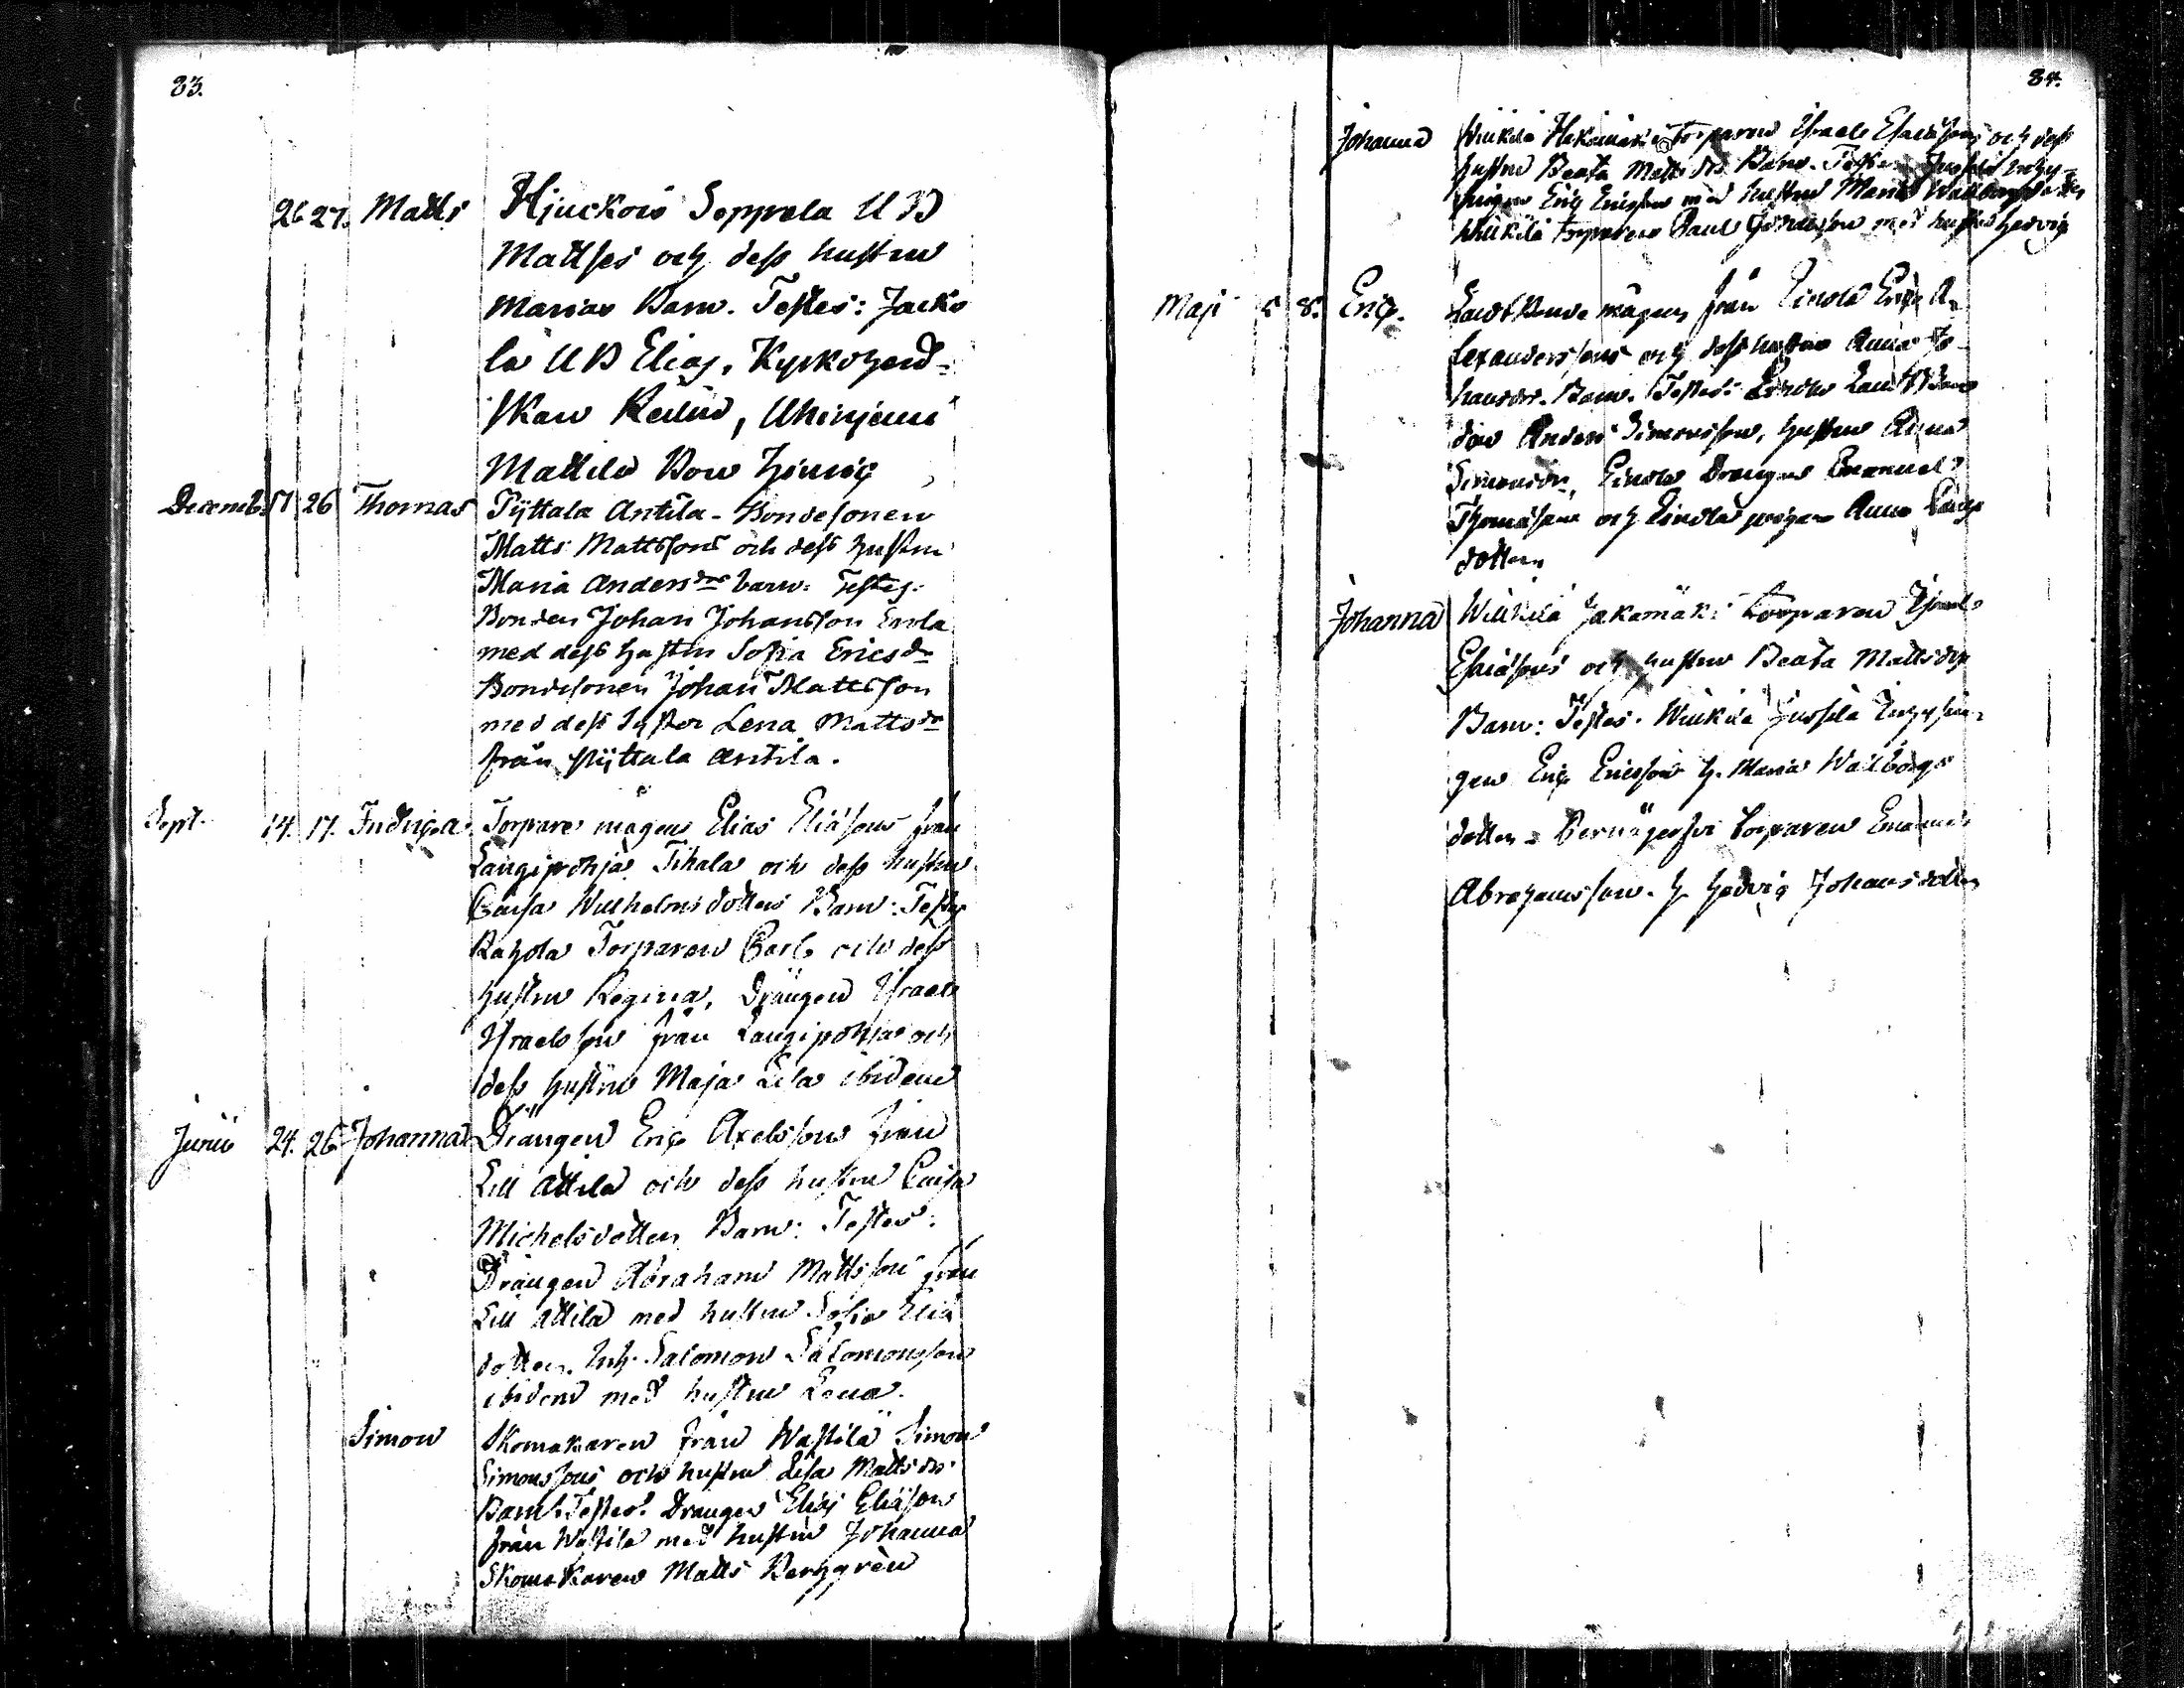 83.
26 27. Matts Hjuckois Seppela U B
Mattses och dess hustru
Marias Barn. Testes: Jacko
la U B Elias, Kyrkoherd-
skan
Mattila Hinric
Decemb. 26 Thomas Pyttala Antila-Bondesonen
Matts Mattssons och dess hustru
Maria Andersdrs barn: Testes:
Bonden Johan Johansson Enola
med dess hustru Sofia Ericsdr
Bondesonen Johan Mattsson
med dess syster Lena Mattsdr
från Pyttala Antila.
Sept. 14. 17. Fredrica Torpare mågens Elias Eliäsons från
Langipohja Tihala och dess hustru
Caisa Wilhelmsdotters Barn: Testes
Rahola Torparen Carl och dess
hustru Regina, Drängen Israel
Israelsson från Langipohja och
dess hustru Maja Lisa ibidem
Junii 24. 26 Johanna Drängen Eric Axelssons från
Lill Attila och dess hustru Caisa
Michelsdotters Barn: Testes:
Drängen Abraham Mattsson från
Lill Attila med hustru Sofia Eliä
dotter. Inh. Salomon Salomonsson
ibidem med hustru Lena.
Simon Skomakaren från Wastila Simon
Simonssons och hustru Lisa Mattsdrs
Barn. Testes: Drängen Elias Eliäson
från Wastila med hustru Johanna
Skomakaren Matts Berggrèn
84.
Johanna Torparen Israels Esaiäsons och dess
hustru Beata Mattsdrs Barn. Testes: Jussila
Eric Ericsson med hustru Maria Wallborgsdotter
Torparen med hustru Hedvig
Maji 5 8. Eric. mågens från Erics A-
lexanderssons och dess hustrus Anna Jo-
hansdrs. Barn. Testes:
den Anders Simonsson, hustru Anna
Simonsdr, Drängen Emanuel
Thomäson och pigan Anna
dotter
Johanna Torparen Israels
Esaiäsons och hustru Beata Mattsdrs
Barn: Testes. Jussila
gen Eric Ericsson h. Maria Wallborgs
dotter Torparen Emanuel
Abrahamsson. h. Hedvig Johansdotter